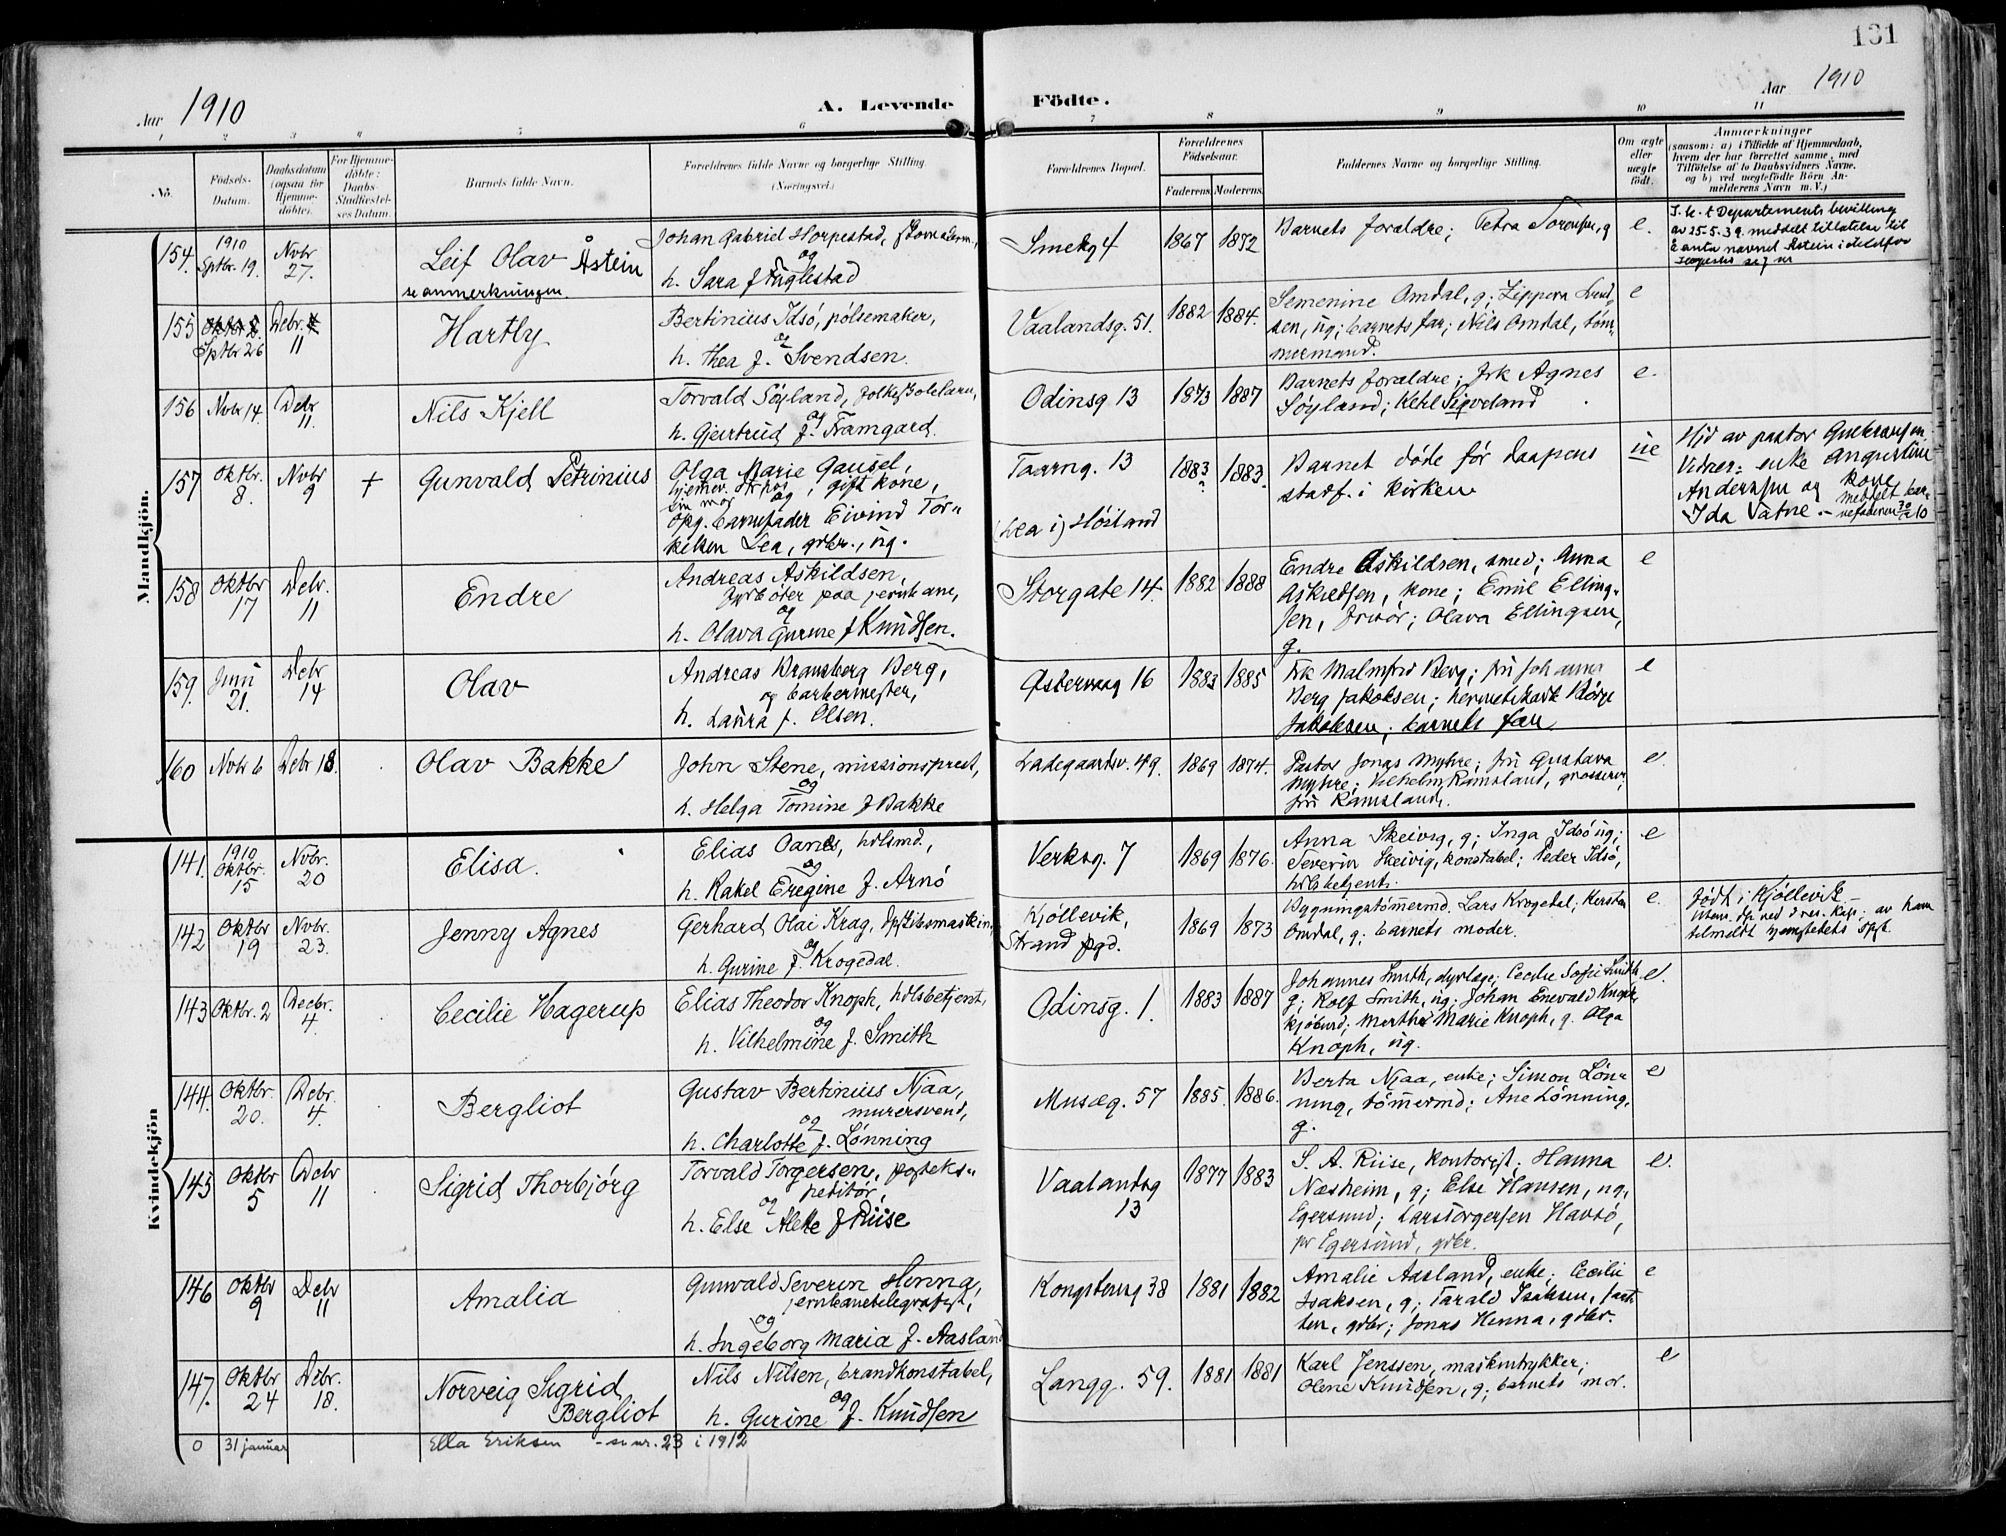 131
Aar 1910
A. Levende Födte.
Aar 1910
1 2 3 4 5 6 7 8 9 10 11
No.
Födsels-Datum.
Daabsdatum (ogsaa for Hjemmedöbte).
For Hjemmedöbte: Daabs-Stadfæstelses Datum.
Barnets fulde Navn.
Forældrenes fulde Navne og borgerlige Stilling. (Næringsvei.)
Forældrenes Bopæl.
Forældrenes Födselsaar.
Faderens. Moderens.
Faddernes Navne og borgerlige Stilling.
Om ægte eller uægte födt.
Anmærkninger
(saasom: a) i Tilfælde af Hjemmedaab, hvem der har forrettet samme, med Tilföielse af to Daabsvidners Navne, og b) ved uægtefödte Börn Anmelderens Navn m. V.)
Mandkjön.
154. 1910 Sptbr. 19. Novbr 27. Leif Olav Åstein
se anmerkningen.
Johan Gabriel Horpestad,
og
h. Sara f Fuglestad
Smedg 4 1867 1872 Barnets foraldre; Petra Sörensen, g e.
Departements bevilling
av 25.5.39. meddelt tillatelse til
å anta navnet Åstein
155 Sptbr 26 Debr. 11 Hartly
Bertinius Idsö, pölsemaker,
og
h. Thea f. Svendsen.
Vaalandsg. 51. 1882 1884. Semenine Omdal, g; Zippora Svendsen, ug; barnets far; Nils Omdal, tömmermand. e
156 Novbr 14. Debr 11. Nils Kjell
Torvald Söyland, folkeskolelærer,
og
h. Gjertrud f. Framgard.
Odinsg 13 1873 1887 Barnets foraldre; frk Agnes
Söyland; Ketil Sigveland e.
157 Oktbr. 8. Novbr 9 + Gunvald Petrinius
Olga Marie Gausel,
gift kone,
og
opg. barnefader Eivind Torkelsen Lea, gdbr., ug.
Taarng. 13
Lea i Höiland
1883 1883. Barnet döde för daapens
stadf. i kirken
ue
Hjd av pastor
Vidner: enke Augustine
Andersen og kone
Ida Vatne. –
158 Oktbr 17 Debr. 11 Endre
Andreas Askildsen,
fyrböter paa jernbane,
og
h. Olava Gurine f Knudsen.
Storgate 14. 1882 1888 Endre Askildsen, smed; Anna
Askildsen, kone; Emil Ellingsen, frisör; Olava Ellingsen,
g. e
159. Juni 21. Debr 14 Olav
Andreas Berg,
og barbermester,
h. Laura f. Olsen.
Östervaag 16 1883 1885 Frk Malmfrid Berg; fru Johanna
Berg Jakobsen; Börge
Jakobsen; barnets far e
160 Novbr 6 Debr 18. Olav Bakke
John Stene, missionsprest,
og
h. Helga Tomine f Bakke
Ladegaardsv. 49. 1869 1874. Pastor Jonas Myhre; fru Gustava
Myhre; Vilhelm Ramsland, grosserer;
fru Ramsland. e.
Kvindekjön
141. 1910 Oktbr. 15 Novbr. 20 Elisa.
Elias Oanes,
og
h. Rakel Eregine f. Arnö
Verksg. 7 1869 1876. Anna Skeivig, g; Inga Idsö ug;
Severin Skeivig, konstabel; Peder Idsö,
e
142 Oktbr 19 Novbr. 23. Jenny Agnes
Gerhard Olai Krag,
og
h. Gurine f. Krogedal.
Kjöllevik,
Strand pgd.
1869 1873 Bygningstömermd. Lars Krogedal; Kersten
Omdal, g; barnets moder. e.
Födt i Kjöllevik –
143 Oktbr. 2 Decbr. 4 Cecilie Hagerup
Elias Theodor Knoph,
og
h. Vilhelmine f. Smith
Odinsg. 1. 1883 1887 Johannes Smith, dyrlæge; Cecilie Sofie Smith
g; Rolf Smith, ug; Johan Enevald Knoph,
Marthe Marie Knoph, g. Olga
Knoph, ug. e.
144. Oktbr. 20. Debr. 4. Bergliot
Gustav Bertinius Njaa,
murersvend,
og
h. Charlotte f. Lönning
Musæg. 57 1885. 1886. Berta Njaa, enke; Simon Lönning, tömermd; Ane Lönning,
g. e
145 Oktbr 5 Debr 11 Sigrid Thorbjörg
Torvald Torgersen,
og
h. Else Alette f Riise
Vaalandsg 13 1877 1883 S. A. Riise, kontorist; Hanna
Næsheim, g; Else Hansen, ug,
Egersund; Lars Torgersen Havsö,
pr Egersund, gdbr. e.
146 Oktbr 9 Debr 11 Amalia
Gunvald Severin Henna,
jernbanetelegrafist,
og
h. Ingeborg Maria f. Aasland
Kongsteinsg 38 1881 1882 Amalie Aasland, enke; Cecilie
Isaksen, g; Tarald Isaksen,
gdbr; Jonas Henna, gdbr. e
147. Oktbr 24 Debr. 18. Norveig Sigrid
Bergliot
Nils Nilsen, brandkonstabel,
og
h. Gurine f. Knudsen
Langg. 59. 1881 1881 Karl Jenssen, maskintrykker;
Olene Knudsen, g; barnets mor. e
0 31 januar Ella Eriksen – se nr. 23 i 1912